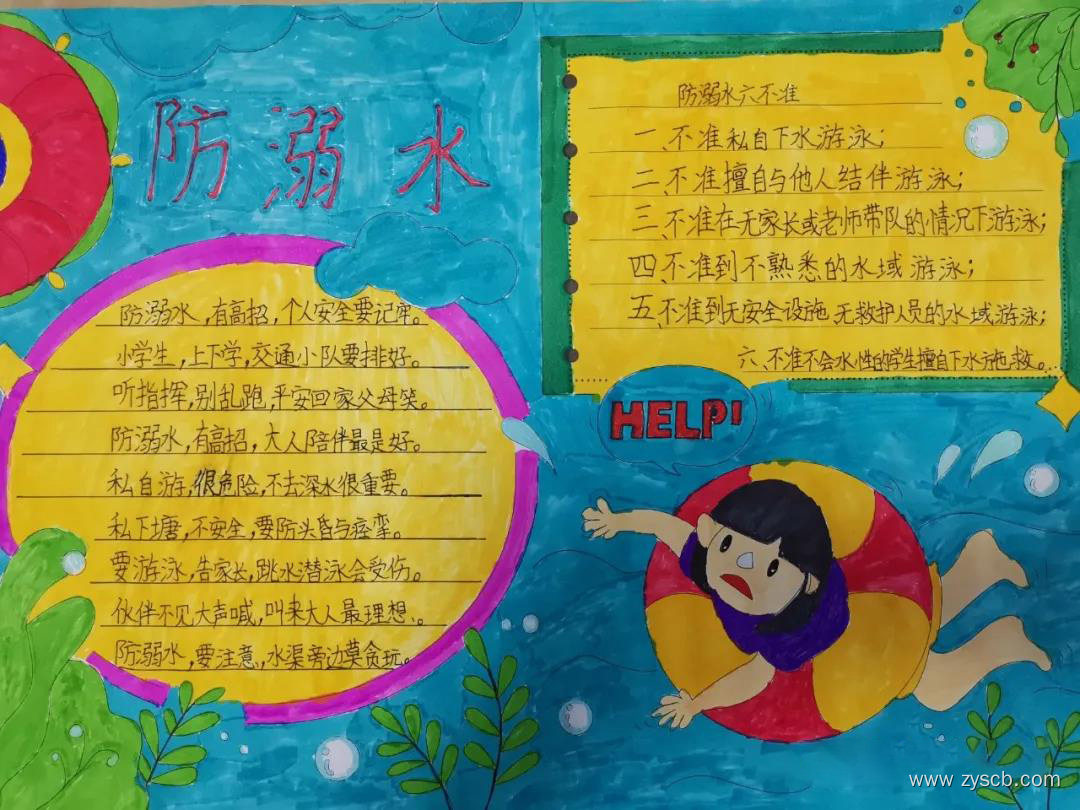 防溺水
防溺水,有高招,个人安全要记牢。
小学生,上下学,交通小队要排好。
听指挥,别乱跑,平安回家父母笑。
防溺水,有高招,大人陪伴最是好。
私自游,很危险,不去深水很重要。
私下塘,不安全,要防头昏与痉挛。
要游泳,告家长,跳水潜泳会受伤。
伙伴不见大声喊,叫来大人最理想。
防溺水,要注意,水渠旁边莫贪玩。
防溺水六不准
一、不准私自下水游泳;
二、不准擅自与他人结伴游泳;
三、不准在无家长或老师带队的情况下游泳;
四、不准到不熟悉的水域游泳;
五、不准到无安全设施、无救护人员的水域游泳;
六、不准不会水性的学生擅自下水施救。
HELP!
www.zyscb.com